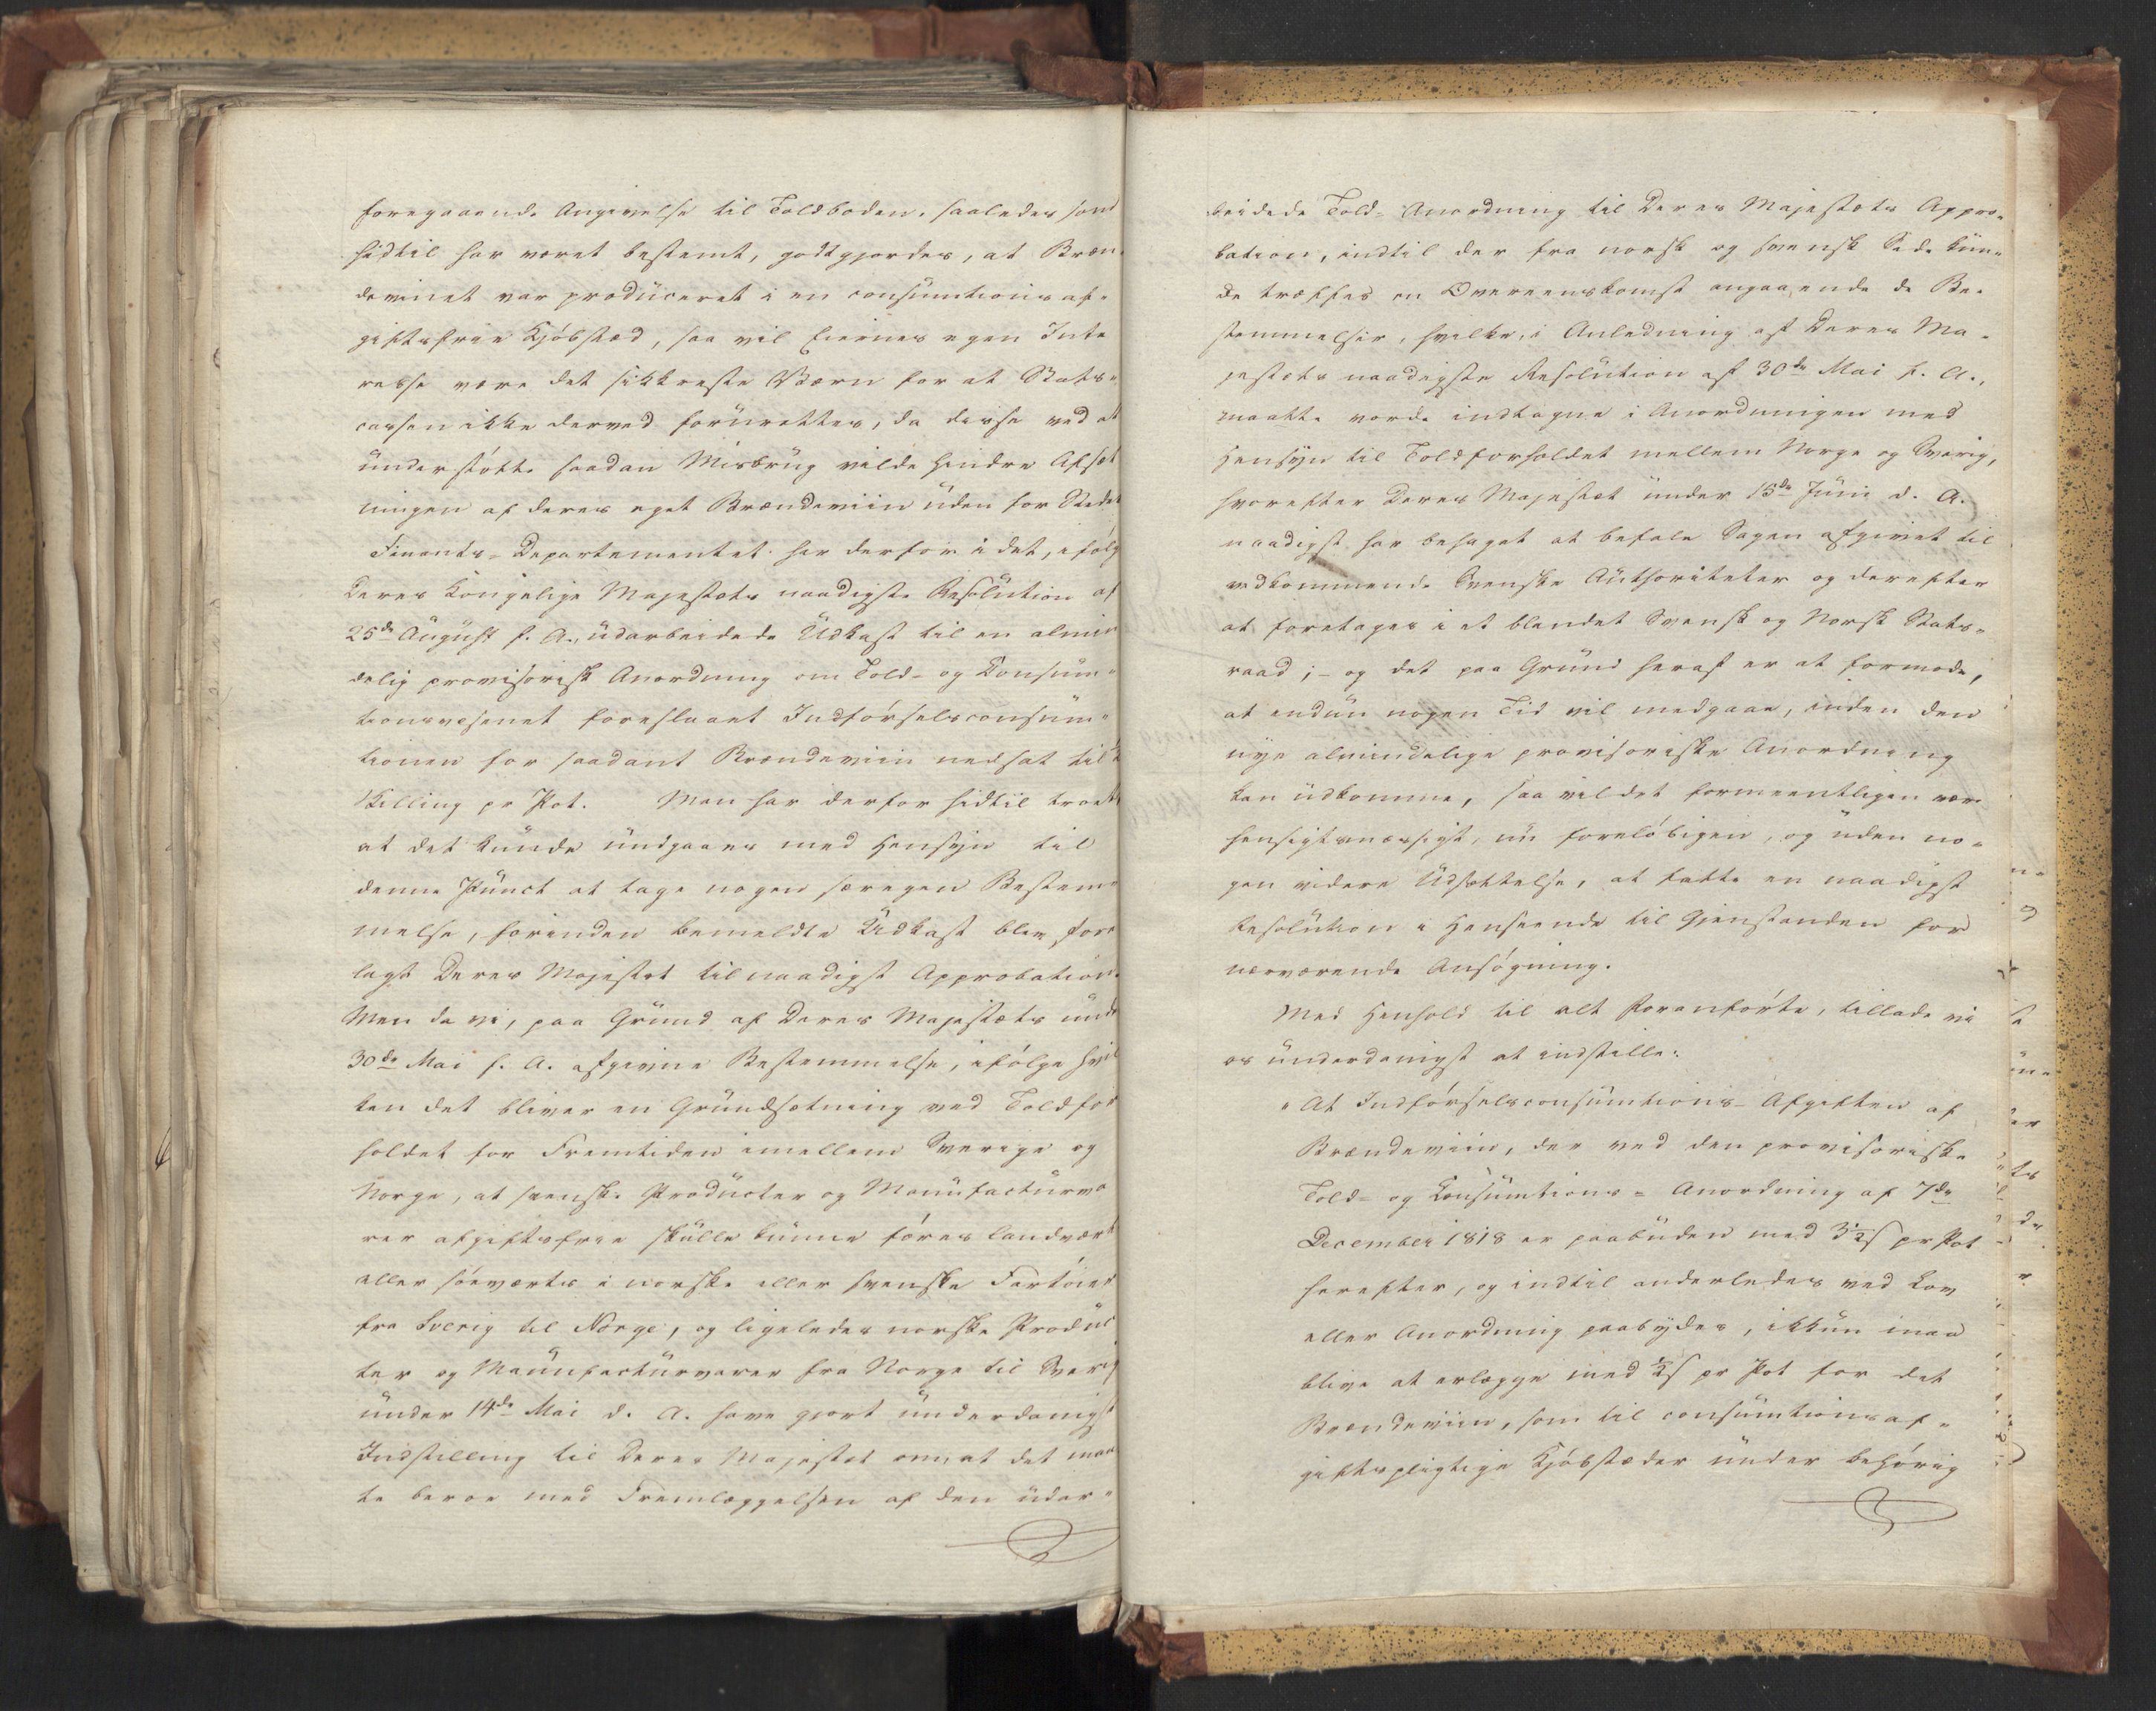 foregaaende Angivelse til Toldboden, saaledes som
hidtil har været bestemt, godtgjordes, at Bræn-
deviinet var produceret i en consumtionsaf-
giftsfrie Kjøbstæd, saa vil Eiernes egen Inte
resse være det sikkreste Værn for at Stats-
cassen ikke derved forurettes, da disse ved at
understøtte saadan Misbrug vilde hindre Afsæt
ningen af deres eget Brændeviin uden for Stedet
Finants-Departementet har derfor i det, ifølge
Deres Kongelige Majestæts naadigste Resolution af
25de August f. A., udarbeidede Udkast til en almin
delig provisorisk Anordning om Told- og Consum-
tionsvæsenet foreslaaet Indførselsconsum-
tionen for saadant Brændeviin nedsat til
Skilling pr Pot. Man har derfor hidtil troet
at det kunde undgaaes med Hensyn til
denne Punct at tage nogen særegen Bestem-
melse, forinden bemeldte Udkast blev fore
lagt Deres Majestæt til naadigst Approbation.
Men da vi, paa Grund af Deres Majestæts under
30de Mai f. A. afgivne Bestemmelse, ifølge hvil
ken det bliver en Grundsætning ved Toldfor
holdet for Fremtiden imellem Sverige og
Norge, at svenske Producter og Manufacturva
rer afgiftsfrie skulle kunne føres landværts
eller søeværts i norske eller svenske Fartøier
fra Sverig til Norge, og ligeledes norske Produc
ter og Manufacturvarer fra Norge til Sverig
under 14de Mai d. A. have gjort underdanigst
Indstilling til Deres Majestæt om, at det maat
te beroe med Fremlæggelsen af den udar-
beidede Told-Anordning til Deres Majestæts Appro-
bation, indtil der fra norsk og svensk Side kun-
de træffes en Overeenskomst angaaende de Be-
stemmelser, hvilke, i Anledning af Deres Ma-
jestæts naadigste Resolution af 30de Mai f. A.,
maatte vorde indtagne i Anordningen med
Hensyn til Toldforholdet mellem Norge og Sverig,
hvorefter Deres Majestæt under 15de Juni d. A.
naadigst har behaget at befale Sagen afgivet til
vedkommende Svenske Authoriteter og derefter
at foretages i et blandet Svensk og Norsk Stats-
raad; - og det paa Grund heraf er at formode,
at endnu nogen Tid vil medgaae, inden den
nye almindelige provisoriske Anordning
kan udkomme, saa vil det formeentligen være
hensigtsmæssigt, nu foreløbigen, og uden no-
gen videre Udsættelse, at fatte en naadigst
Resolution i Henseende til Gjenstanden for
nærværende Ansøgning.
Med Henhold til alt Foranførte, tillade vi
os underdanigst at indstille:
"At Indførselsconsumtions-Afgiften af
Brændeviin, der ved den provisoriske
Told- og Consumtions-Anordning af 7de
December 1818 er paabuden med 3½ s pr Pot
herefter, og indtil anderledes ved Lov
eller Anordning paabydes, ikkun maa
blive at erlægge med ½ s pr Pot for det
Brændeviin, som til consumtionsaf-
giftspligtige Kjøbstæder under behørig